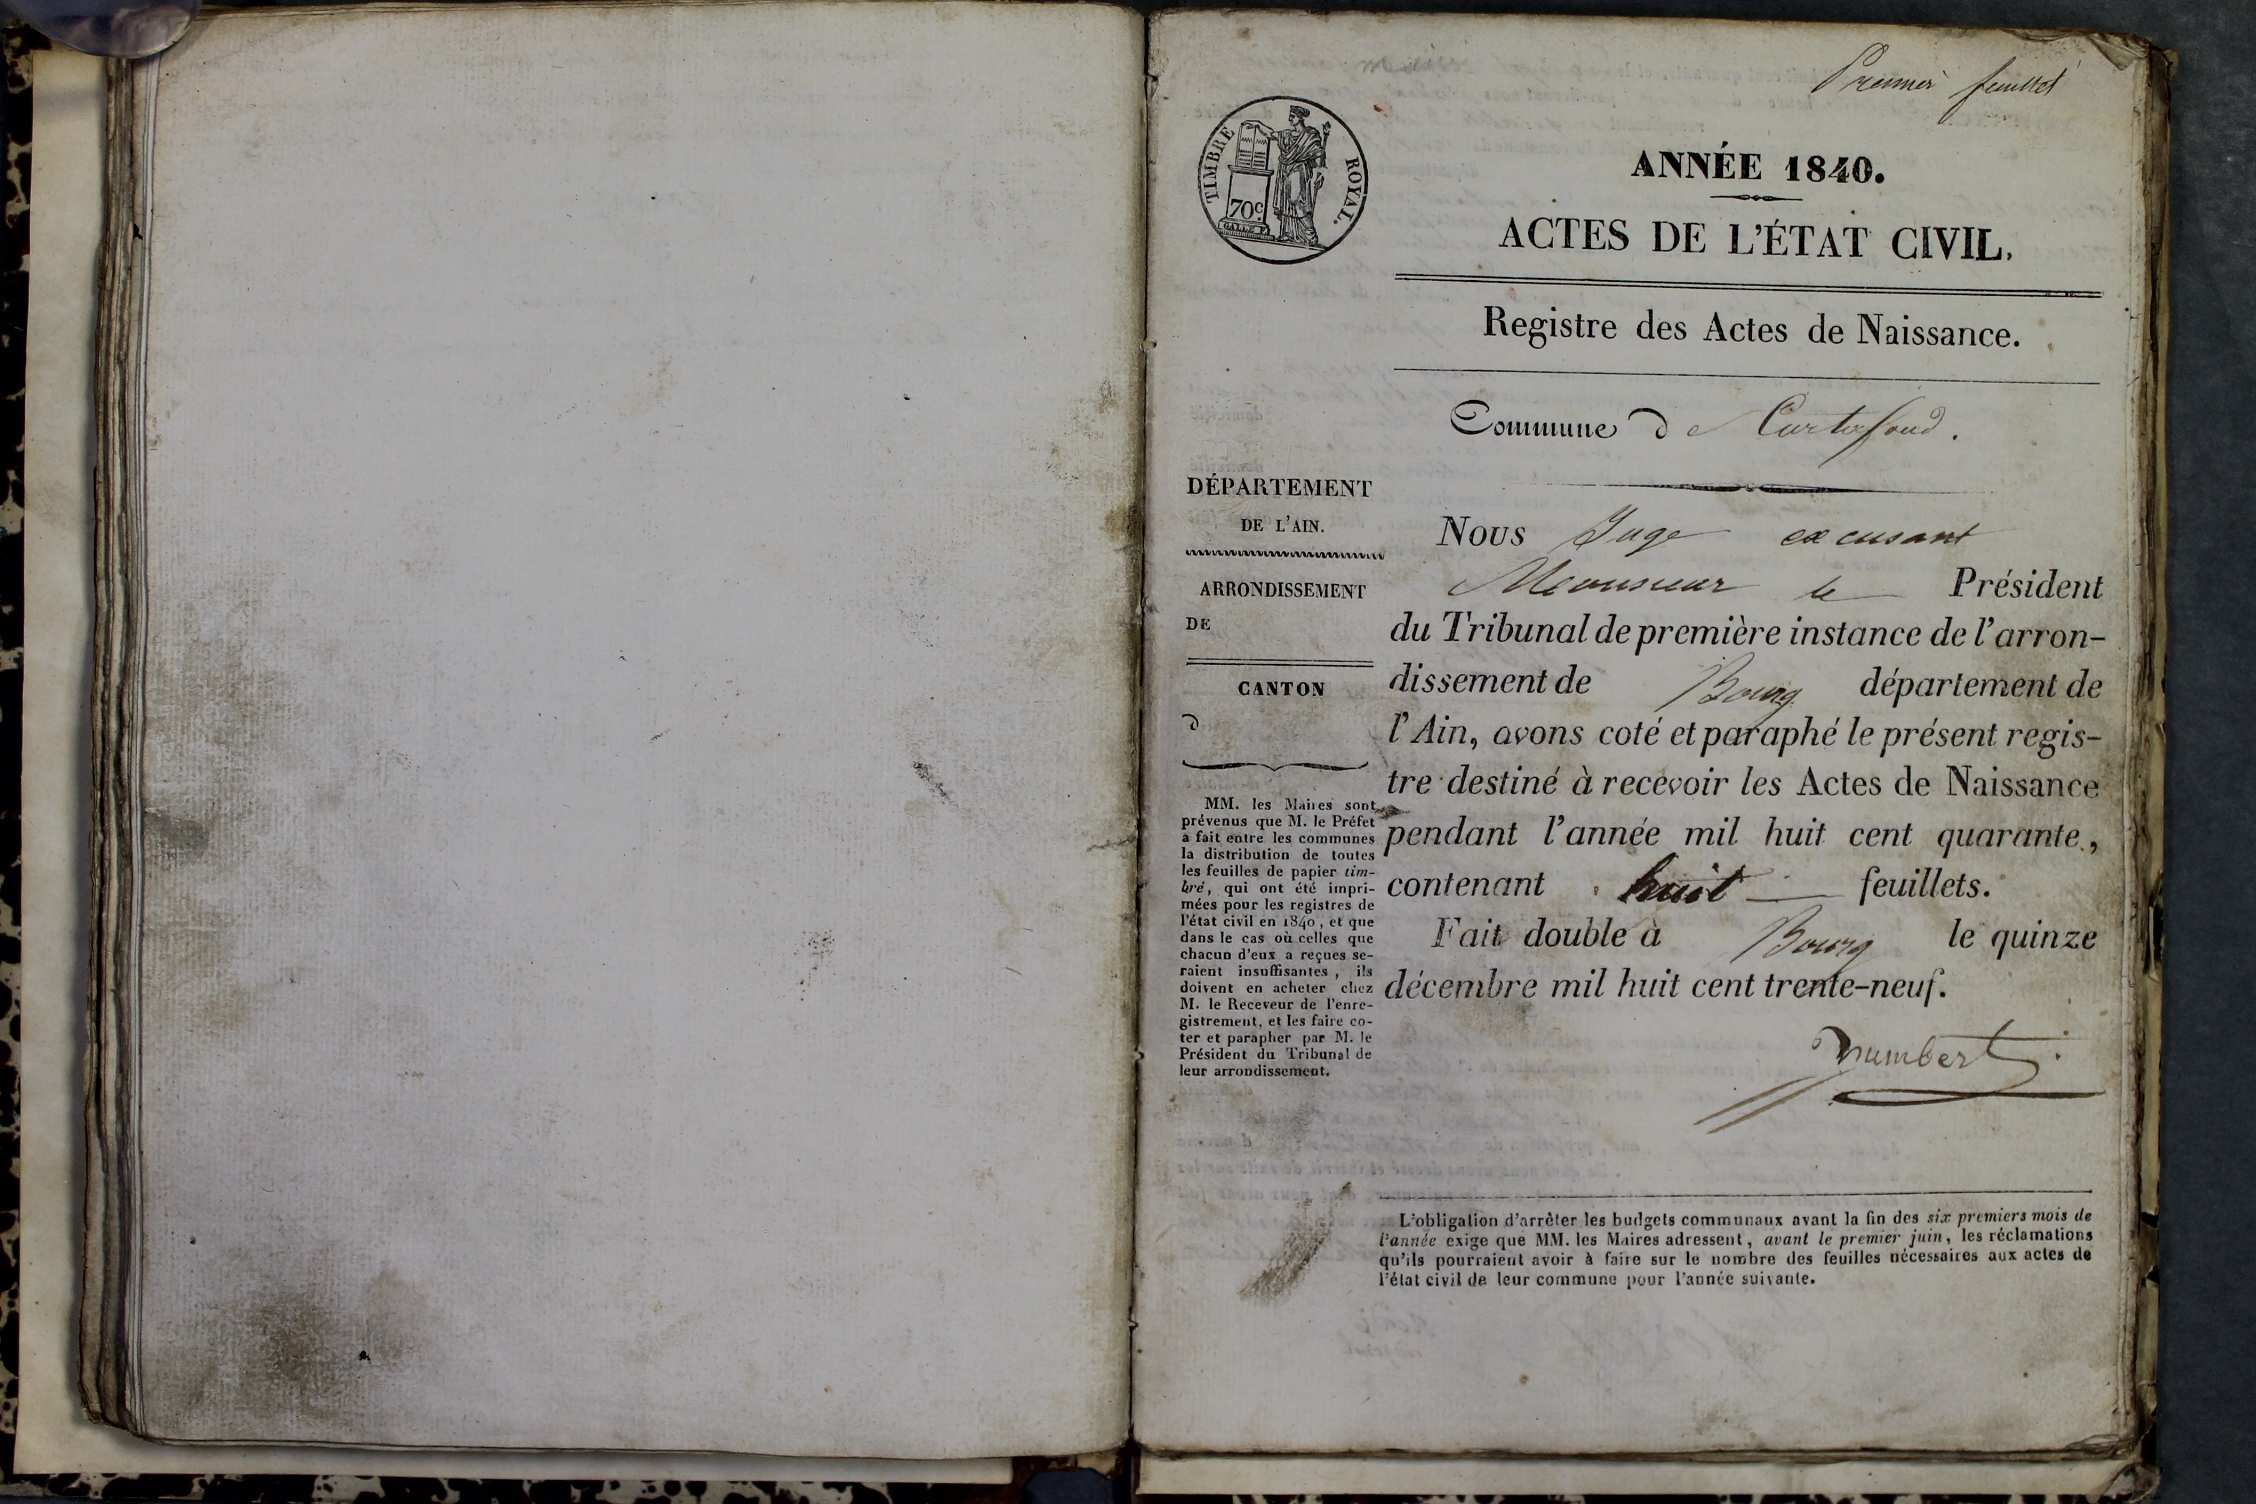 Premier feuillet
TIMBRE ROYAL.
70c.
ANNÉE 1840.
ACTES DE L'ÉTAT CIVIL.
Registre des Actes de Naissance.
Commune de Curtafond.
DÉPARTEMENT
DE L'AIN.
ARRONDISSEMENT
DE
CANTON
d
MM. les Maires sont
prévenus que M. le Préfet
a fait entre les communes
la distribution de toutes
les feuilles de papier tim-
bré, qui ont été impri-
mées pour les registres de
l'état civil en 1840, et que
dans le cas où celles que
chacun d'eux a reçues se-
raient insuffisantes, ils
doivent en acheter chez
M. le Receveur de l'enre-
gistrement, et les faire co-
ter et parapher par M. le
Président du Tribunal de
leur arrondissement.
Nous Juge excusant
Monsieur le Président
du Tribunal de première instance de l'arron-
dissement de Bourg département de
l'Ain, avons coté et paraphé le présent regis-
tre destiné à recevoir les Actes de Naissance
pendant l'année mil huit cent quarante,
contenant huit feuillets.
Fait double à Bourg le quinze
décembre mil huit cent trente-neuf.
L'obligation d'arrêter les budgets communaux avant la fin des six premiers mois de
l'année exige que MM. les Maires adressent, avant le premier juin, les réclamations
qu'ils pourraient avoir à faire sur le nombre des feuilles nécessaires aux actes de
l'état civil de leur commune pour l'année suivante.